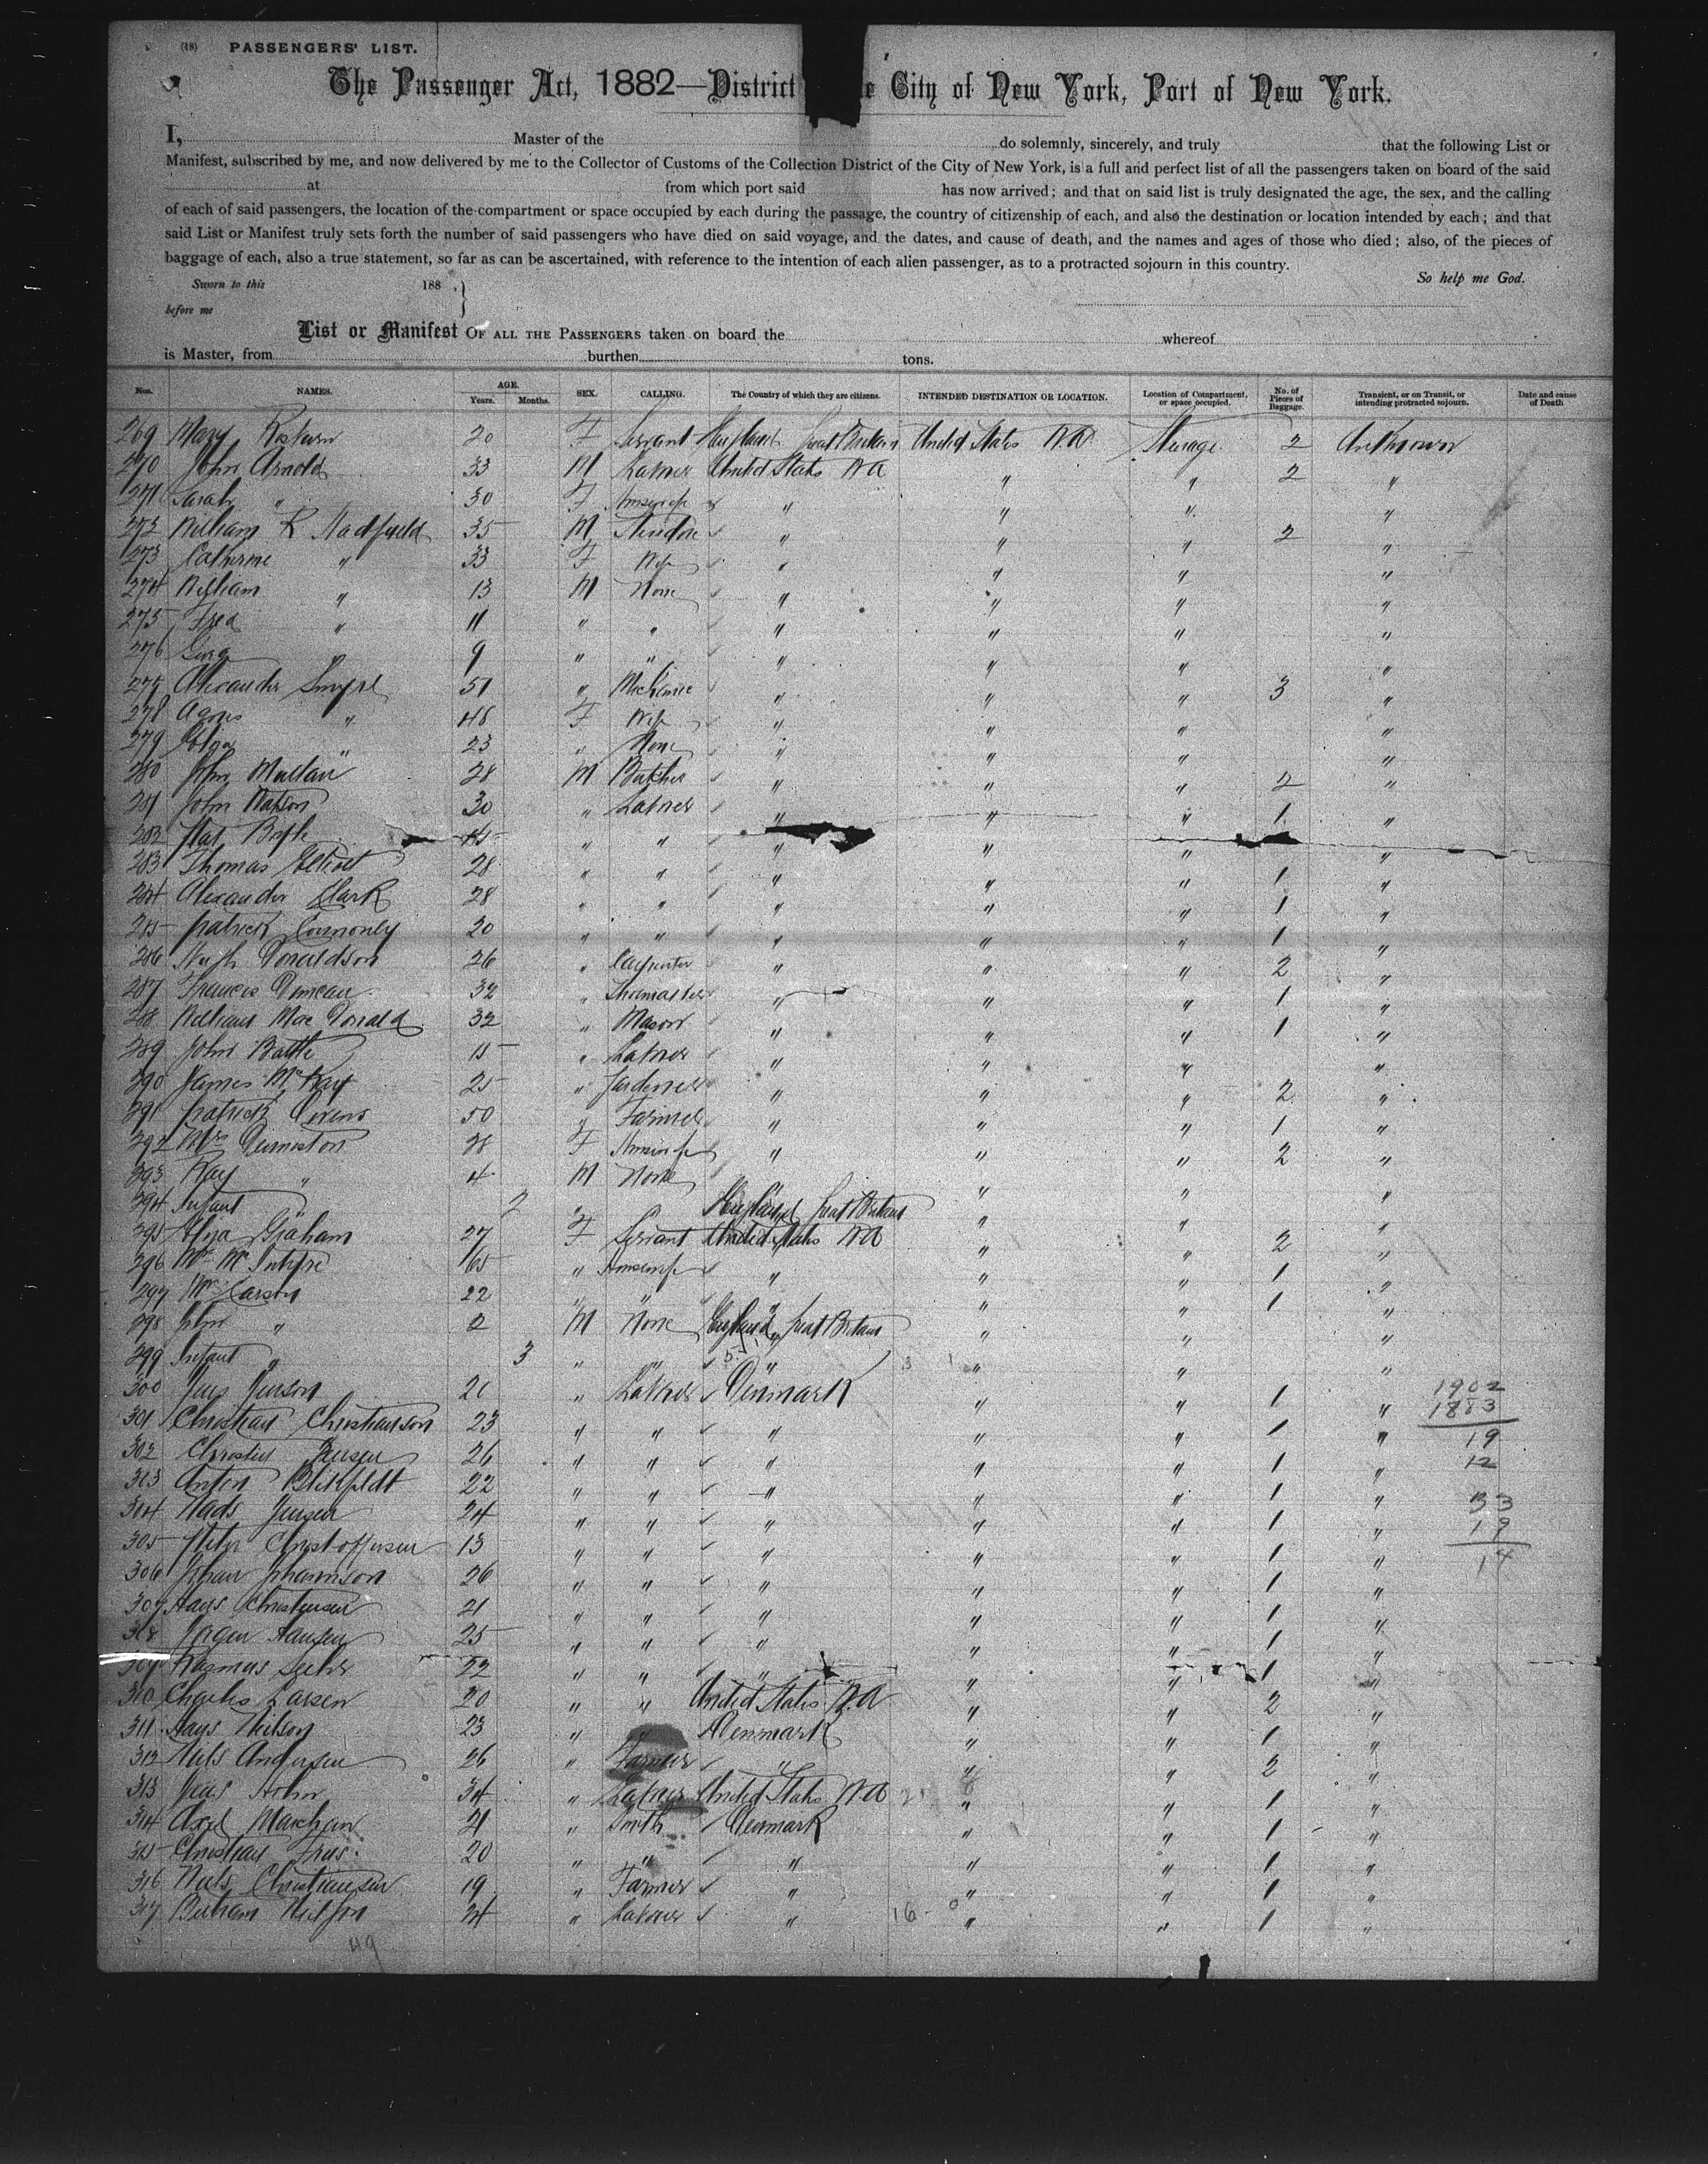 (18) PASSENGERS' LIST.
The Passenger Act, 1882—District e City of New York, Port of New York.
I, Master of the do solemnly, sincerely, and truly that the following List or
Manifest, subscribed by me, and now delivered by me to the Collector of Customs of the Collection District of the City of New York, is a full and perfect list of all the passengers taken on board of the said
at from which port said has now arrived; and that on said list is truly designated the age, the sex, and the calling
of each of said passengers, the location of the compartment or space occupied by each during the passage, the country of citizenship of each, and also the destination or location intended by each; and that
said List or Manifest truly sets forth the number of said passengers who have died on said voyage, and the dates, and cause of death, and the names and ages of those who died; also, of the pieces of
baggage of each, also a true statement, so far as can be ascertained, with reference to the intention of each alien passenger, as to a protracted sojourn in this country.
So help me God.
Sworn to this 188 .
before me
List or Manifest OF ALL THE PASSENGERS taken on board the whereof
is Master, from burthen tons.
Nos. NAMES. AGE. Years. Months. SEX. CALLING. The Country of which they are citizens. INTENDED DESTINATION OR LOCATION. Location of Compartment, or space occupied. No. of Pieces of Baggage. Transient, or on Transit, or intending protracted sojourn. Date and cause of Death
269 Mary 20 F Servant England Great Britain United States N.A. Steerage 2 Unknown
270 John Arnold 33 M Laborer United States N.A. " " 2 "
271 Sarah " 30 F Housewife " " " "
272 William R Hadfield 35 M " " " 2 "
273 Catherine " 33 F Wife " " " "
274 William " 13 M None " " " "
275 Fred " 11 " " " " " "
276 " 9 " " " " " "
277 Alexander 51 " Mechanic " " " 3 "
278 Agnes " 48 F Wife " " " "
279 " 23 " None " " " "
280 John 28 M Butcher " " " 2 "
281 John Watson 30 " Laborer " " " 1 "
282 45 " " " " " "
283 Thomas Elliott 28 " " " " " 1 "
284 Alexander Clark 28 " " " " " 1 "
285 Patrick 20 " " " " " 1 "
286 Hugh Donaldson 26 " Carpenter " " " 2 "
287 Francis Duncan 32 " Shoemaker " " " 1 "
288 William MacDonald 32 " Mason " " " 1 "
289 John Battle 15 " Laborer " " " "
290 James McKay 25 " Gardener " " " 2 "
291 Patrick Owens 50 " Farmer " " " 1 "
292 Mrs 28 F Housewife " " " 2 "
293 Ray " 4 M None " " " "
294 Infant 2 " England Great Britain " " "
295 Graham 27 F Servant United States N.A. " " 2 "
296 McIntyre 65 " Housewife " " " 1 "
297 Carson 22 " " " " " 1 "
298 John " 2 M None England Great Britain " " "
299 Infant " 3 " " " " " "
300 Jens Jenson 21 " Laborer Denmark " " 1 " 1902
1883
301 Christian Christianson 23 " " " " " 1 " 19
302 Christen Jensen 26 " " " " " 1 " 12
303 Anton Blichfeldt 22 " " " " " 1 "
304 Mads Jensen 24 " " " " " 1 " 33
305 Peter Christoffersen 13 " " " " " 1 " 19
306 Johan Johannson 26 " " " " " 1 " 14
307 Hans Christensen 21 " " " " " 1 "
308 Jorgen Hansen 25 " " " " " 1 "
309 Rasmus 22 " " " " " 1 "
310 Charles Larsen 20 " " United States N.A. " " 2 "
311 Hans Neilson 23 " " Denmark " " 1 "
312 Niels Andersen 26 " Farmer " " " 2 "
313 Jens Holm 34 " Laborer United States N.A. " " 1 "
314 Axel 21 " Smith Denmark " " 1 "
315 Christian Friis 20 " " " " " 1 "
316 Niels Christiansen 19 " Farmer " " " 1 "
317 24 " Laborer " " " 1 "
49